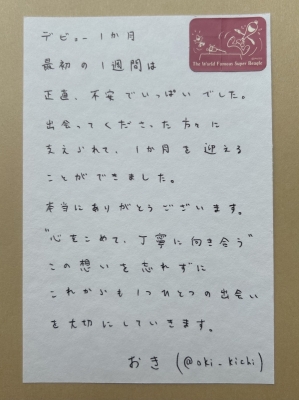 デビュー1か月
The World Famous Super Beagle
最初の1週間は
正直、不安でいっぱいでした。
出会ってくださった方々に
支えられて、1か月を迎える
ことができました。
本当にありがとうございます。
"心をこめて、丁寧に向き合う"
この想いを忘れずに
これからも1つひとつの出会い
を大切にしていきます。
おき (@oki_kichi)